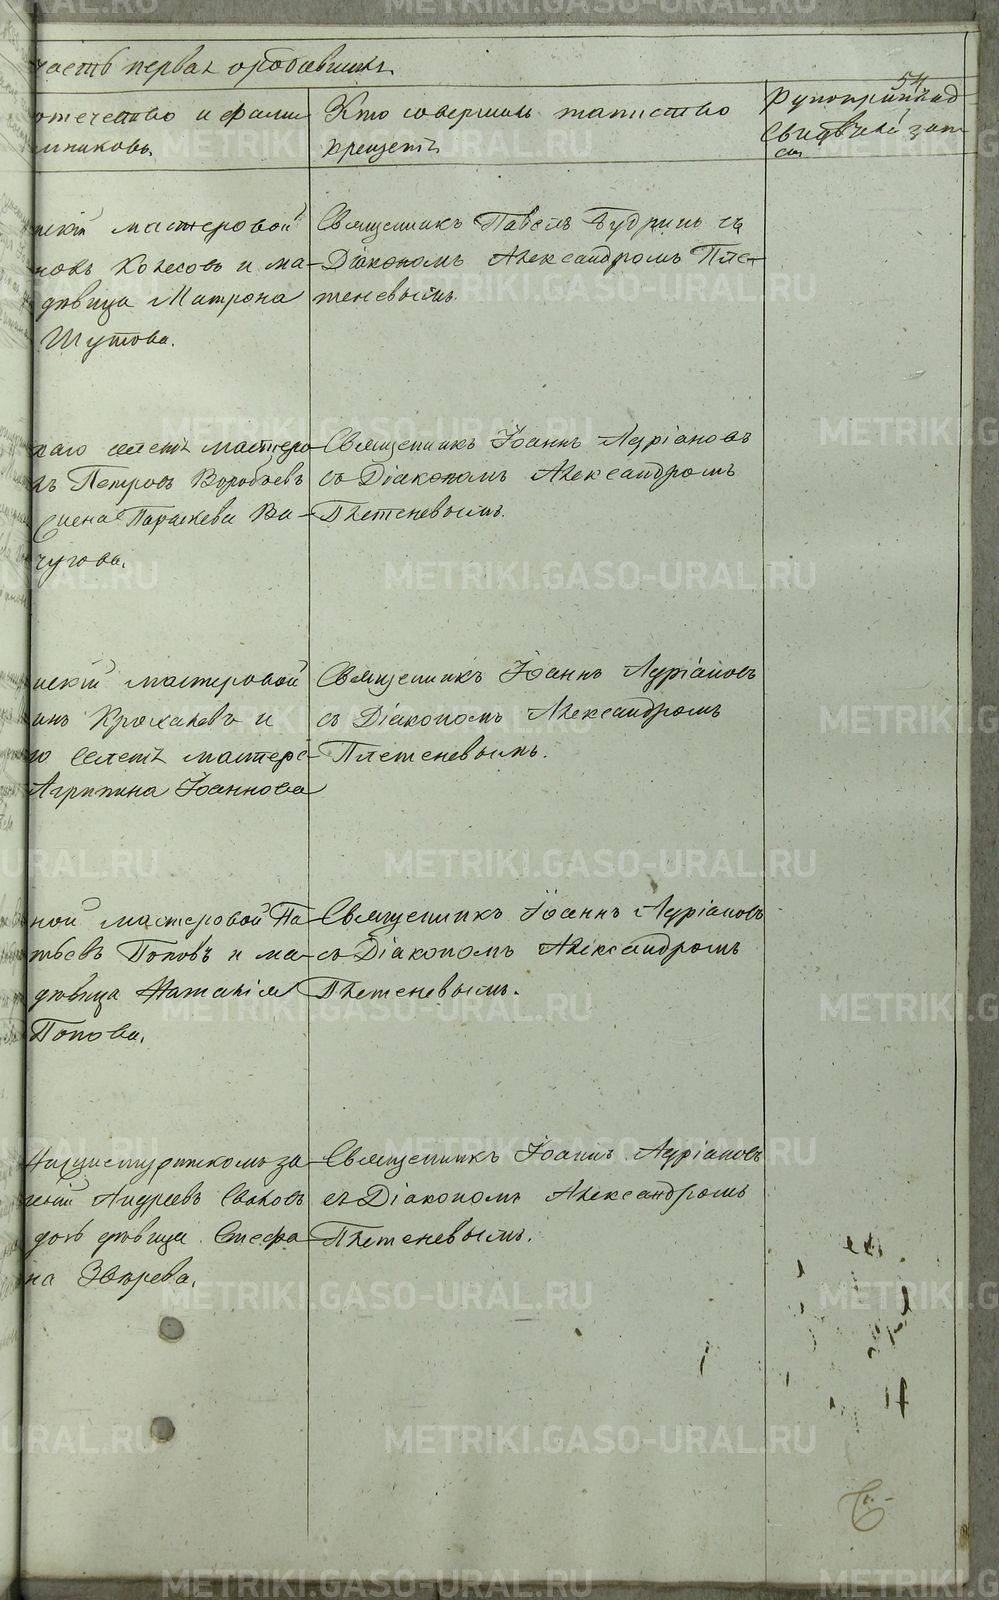 часть первая о родившихъ
54
отечество и фами
мниковъ.
Кто совершалъ таинство
крещенія
Рукоприклад
свидѣтел запи
си
скій мастеровой
новъ Колесовъ и ма-
дѣвица Матрона
Шутова.
Священникъ Павелъ Будринъ съ
Діакономъ Александромъ Пле-
теневымъ.
каго селенія мастеро
Петровъ Воробьевъ
Параскева Ва-
чугова.
Священникъ Іоаннъ Адріановъ
съ Діакономъ Александромъ
Плетеневымъ.
нскій мастеровой
инъ Крохалевъ и
го селенія мастеро-
Агрипина Іоаннова
Священникъ Іоаннъ Адріановъ
съ Діакономъ Александромъ
Плетеневымъ.
ной мастеровой Па
твевъ Поповъ и ма-
дѣвица Наталія
Попова.
Священникъ Іоаннъ Адріановъ
съ Діакономъ Александромъ
Плетеневымъ.
Нижнетуринскомъ за-
Андреевъ Сваловъ
дочь дѣвица Стефа
на Звѣрева.
Священникъ Іоаннъ Адріановъ
съ Діакономъ Александромъ
Плетеневымъ.
METRIKI.GASO-URAL.RU